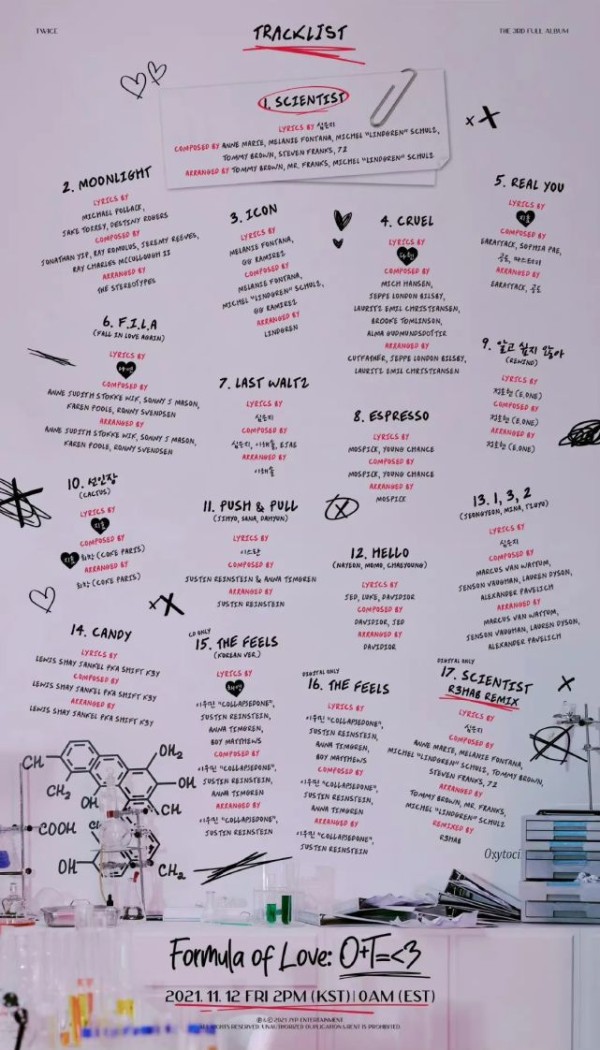 TWICE
TRACKLIST
THE 3RD FULL ALBUM
1. SCIENTIST
LYRICS BY 심은지
COMPOSED BY ANNE MARIE, MELANIE FONTANA, MICHEL "LINDGREN" SCHULZ,
TOMMY BROWN, STEVEN FRANKS, 72
ARRANGED BY TOMMY BROWN, MR. FRANKS, MICHEL "LINDGREN" SCHULZ
2. MOONLIGHT
LYRICS BY
MICHAEL POLLACK,
JAKE TORREY, DESTINY ROGERS
COMPOSED BY
JONATHAN YIP, RAY ROMULUS, JEREMY REEVES,
RAY CHARLES MCCULLOUGH II
ARRANGED BY
THE STEREOTYPES
3. ICON
LYRICS BY
MELANIE FONTANA,
GG RAMIREZ
COMPOSED BY
MELANIE FONTANA,
MICHEL "LINDGREN" SCHULZ,
GG RAMIREZ
ARRANGED BY
LINDGREN
4. CRUEL
LYRICS BY
다현
COMPOSED BY
MICH HANSEN,
JEPPE LONDON BILSBY,
LAURITZ EMIL CHRISTIANSEN,
BROOKE TOMLINSON,
ALMA GUDMUNDSDOTTIR
ARRANGED BY
CUTFATHER, JEPPE LONDON BILSBY,
LAURITZ EMIL CHRISTIANSEN
5. REAL YOU
LYRICS BY
지효
COMPOSED BY
EARATTACK, SOPHIA PAE,
공도,
ARRANGED BY
EARATTACK, 공도
6. F.I.L.A
(FALL IN LOVE AGAIN)
LYRICS BY
다현
COMPOSED BY
ANNE JUDITH STOKKE WIK, SONNY J MASON,
KAREN POOLE, RONNY SVENDSEN
ARRANGED BY
ANNE JUDITH STOKKE WIK, SONNY J MASON,
KAREN POOLE, RONNY SVENDSEN
7. LAST WALTZ
LYRICS BY
심은지
COMPOSED BY
심은지, 이해솔, EJAE
ARRANGED BY
이해솔
8. ESPRESSO
LYRICS BY
MOSPICK, YOUNG CHANCE
COMPOSED BY
MOSPICK, YOUNG CHANCE
ARRANGED BY
MOSPICK
9. 알고 싶지 않아
(REWIND)
LYRICS BY
정호현 (E.ONE)
COMPOSED BY
정호현 (E.ONE)
ARRANGED BY
정호현 (E.ONE)
10. 선인장
(CACTUS)
LYRICS BY
지효
COMPOSED BY
지효 최락 (COKE PARIS)
ARRANGED BY
최락 (COKE PARIS)
11. PUSH & PULL
(JIHYO, SANA, DAHYUN)
LYRICS BY
이스란
COMPOSED BY
JUSTIN REINSTEIN & ANNA TIMGREN
ARRANGED BY
JUSTIN REINSTEIN
12. HELLO
(NAYEON, MOMO, CHAEYOUNG)
LYRICS BY
JED, LUKE, DAVIDIOR
COMPOSED BY
DAVIDIOR, JED
ARRANGED BY
DAVIDIOR
13. 1, 3, 2
(JEONGYEON, MINA, TZUYU)
LYRICS BY
심은지
COMPOSED BY
MARCUS VAN WATTUM,
JENSON VAUGHAN, LAUREN DYSON,
ALEXANDER PAVELICH
ARRANGED BY
MARCUS VAN WATTUM,
JENSON VAUGHAN, LAUREN DYSON,
ALEXANDER PAVELICH
14. CANDY
LYRICS BY
LEWIS SHAY JANKEL PKA SHIFT K3Y
COMPOSED BY
LEWIS SHAY JANKEL PKA SHIFT K3Y
ARRANGED BY
LEWIS SHAY JANKEL PKA SHIFT K3Y
CD ONLY
15. THE FEELS
(KOREAN VER.)
LYRICS BY
채영
이우민 "COLLAPSEDONE",
JUSTIN REINSTEIN,
ANNA TIMGREN,
BOY MATTHEWS
COMPOSED BY
이우민 "COLLAPSEDONE",
JUSTIN REINSTEIN,
ANNA TIMGREN
ARRANGED BY
이우민 "COLLAPSEDONE",
JUSTIN REINSTEIN
DIGITAL ONLY
16. THE FEELS
LYRICS BY
이우민 "COLLAPSEDONE",
JUSTIN REINSTEIN,
ANNA TIMGREN,
BOY MATTHEWS
COMPOSED BY
이우민 "COLLAPSEDONE",
JUSTIN REINSTEIN,
ANNA TIMGREN
ARRANGED BY
이우민 "COLLAPSEDONE",
JUSTIN REINSTEIN
DIGITAL ONLY
17. SCIENTIST
R3HAB REMIX
LYRICS BY
심은지
COMPOSED BY
ANNE MARIE, MELANIE FONTANA,
MICHEL "LINDGREN" SCHULZ, TOMMY BROWN,
STEVEN FRANKS, 72
ARRANGED BY
TOMMY BROWN, MR. FRANKS,
MICHEL "LINDGREN" SCHULZ
REMIXED BY
R3HAB
CH
OH2
CH2
OH
OH
CH
COOH
OH
CH2
Oxytoci
Formula of Love: O+T=<3
2021. 11. 12 FRI 2PM (KST) | 0AM (EST)
2021 JYP ENTERTAINMENT.
ALL RIGHTS RESERVED. UNAUTHORIZED DUPLICATION & RENT IS PROHIBITED.